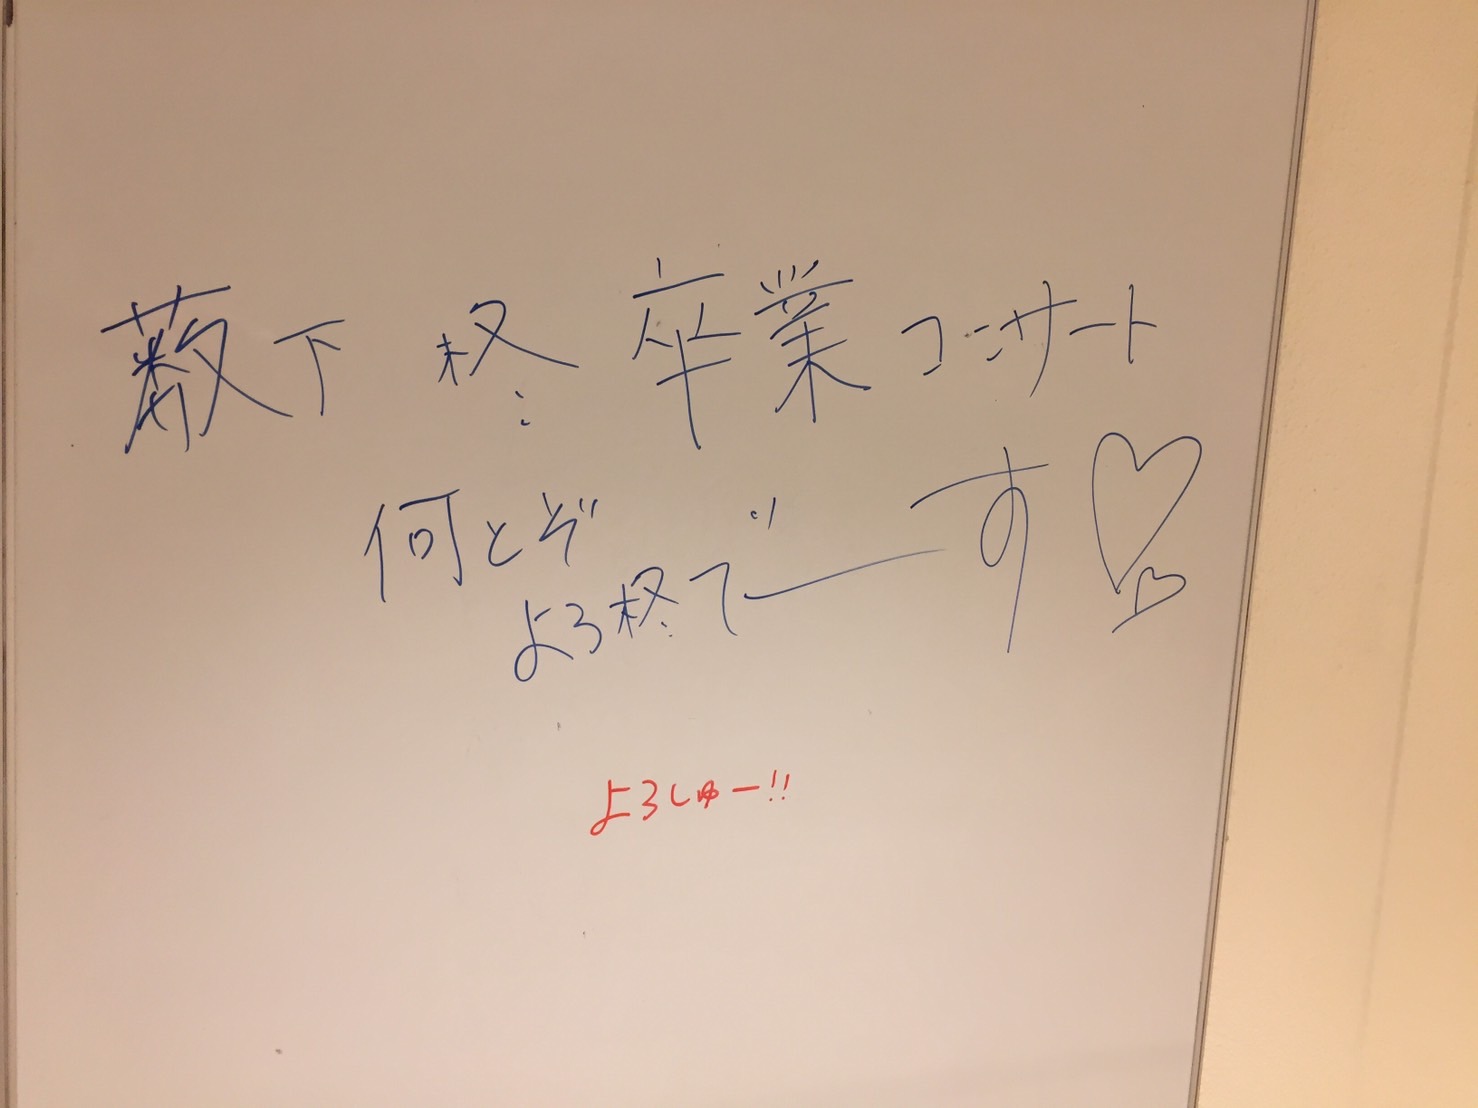 薮下 柊 卒業コンサート
何とぞ
よろ柊でーす♡♡
よろしゅー!!